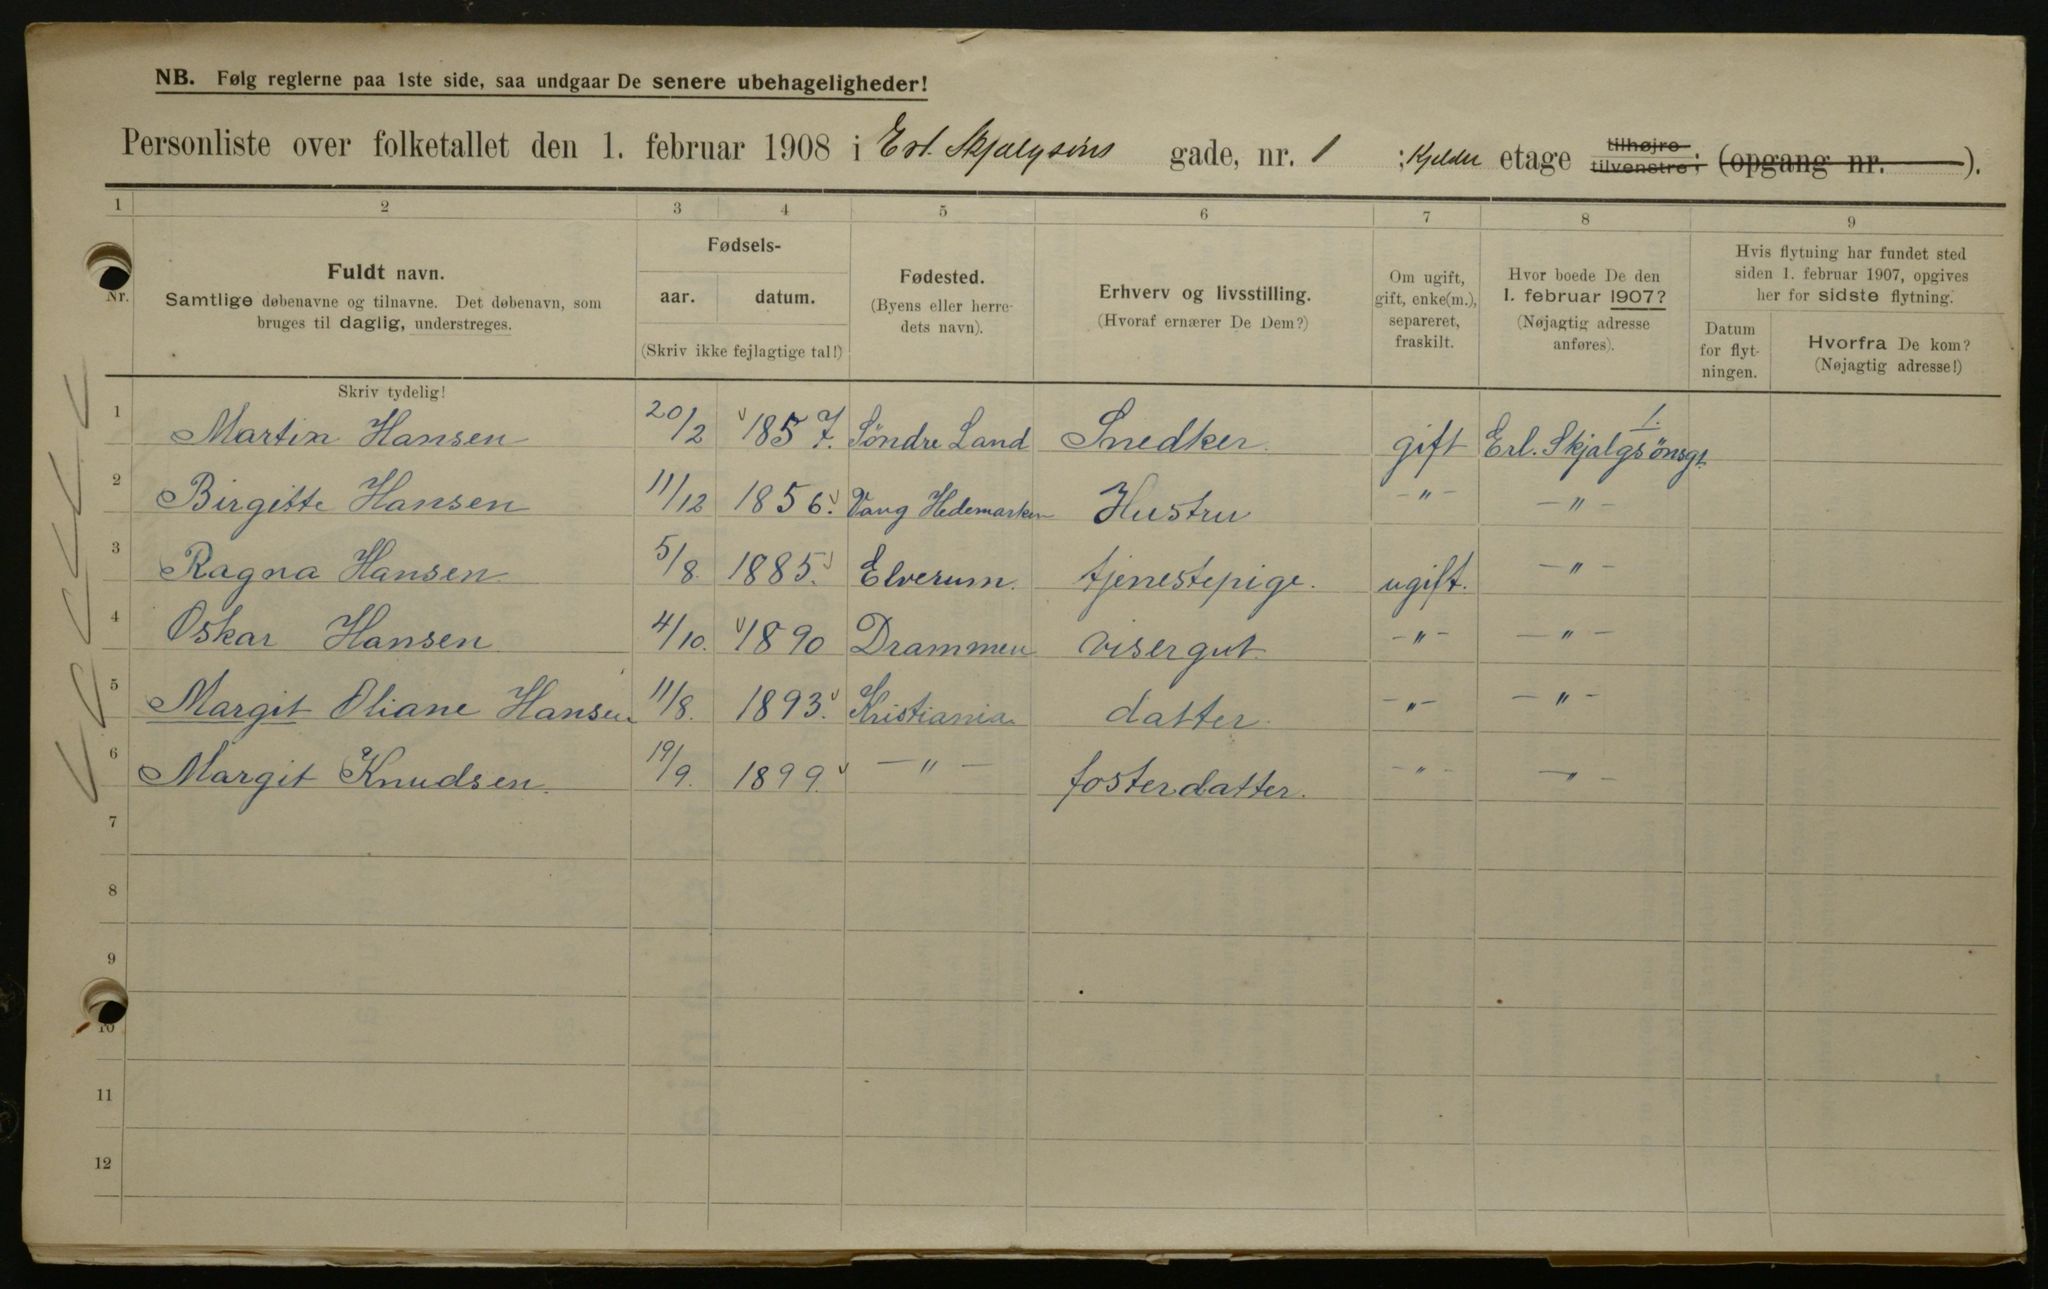 NB. Følg reglerne paa 1ste side, saa undgaar De senere ubehageligheder!
Personliste over folketallet den 1. februar 1908 i Erl. Skjalgsøns gade, nr. 1 ; Kjelder etage tilhøjre tilvenstre; (opgang nr. ).
1 2 3 4 5 6 7 8 9
Nr.
Fuldt navn.
Samtlige døbenavne og tilnavne. Det døbenavn, som
bruges til daglig, understreges.
Skriv tydelig!
Fødsels-
aar. datum.
(Skriv ikke fejlagtige tal!)
Fødested.
(Byens eller herre-
dets navn).
Erhverv og livsstilling.
(Hvoraf ernærer De Dem?)
Om ugift,
gift, enke(m.),
separeret,
fraskilt.
Hvor boede De den
1. februar 1907?
(Nøjagtig adresse
anføres).
Hvis flytning har fundet sted
siden 1. februar 1907, opgives
her for sidste flytning.
Datum
for flyt-
ningen.
Hvorfra De kom?
(Nøjagtig adresse!)
1 Martin Hansen 20/2 1857. Søndre Land Snedker. gift Erl. Skjalgsönsgt. 1.
2 Birgitte Hansen 11/12 1856. Vang Hedemarken Hustru -"- -"-
3 Ragna Hansen 5/8. 1885. Elverum. tjenestepige. ugift. -"-
4 Oskar Hansen 4/10. 1890 Drammen visergut. -"- -"-
5 Margit Oliane Hansen 11/8. 1893. Kristiania datter. -"- -"-
6 Margit Knudsen. 19/9. 1899. -"- fosterdatter. -"- -"-
7
8
9
10
11
12